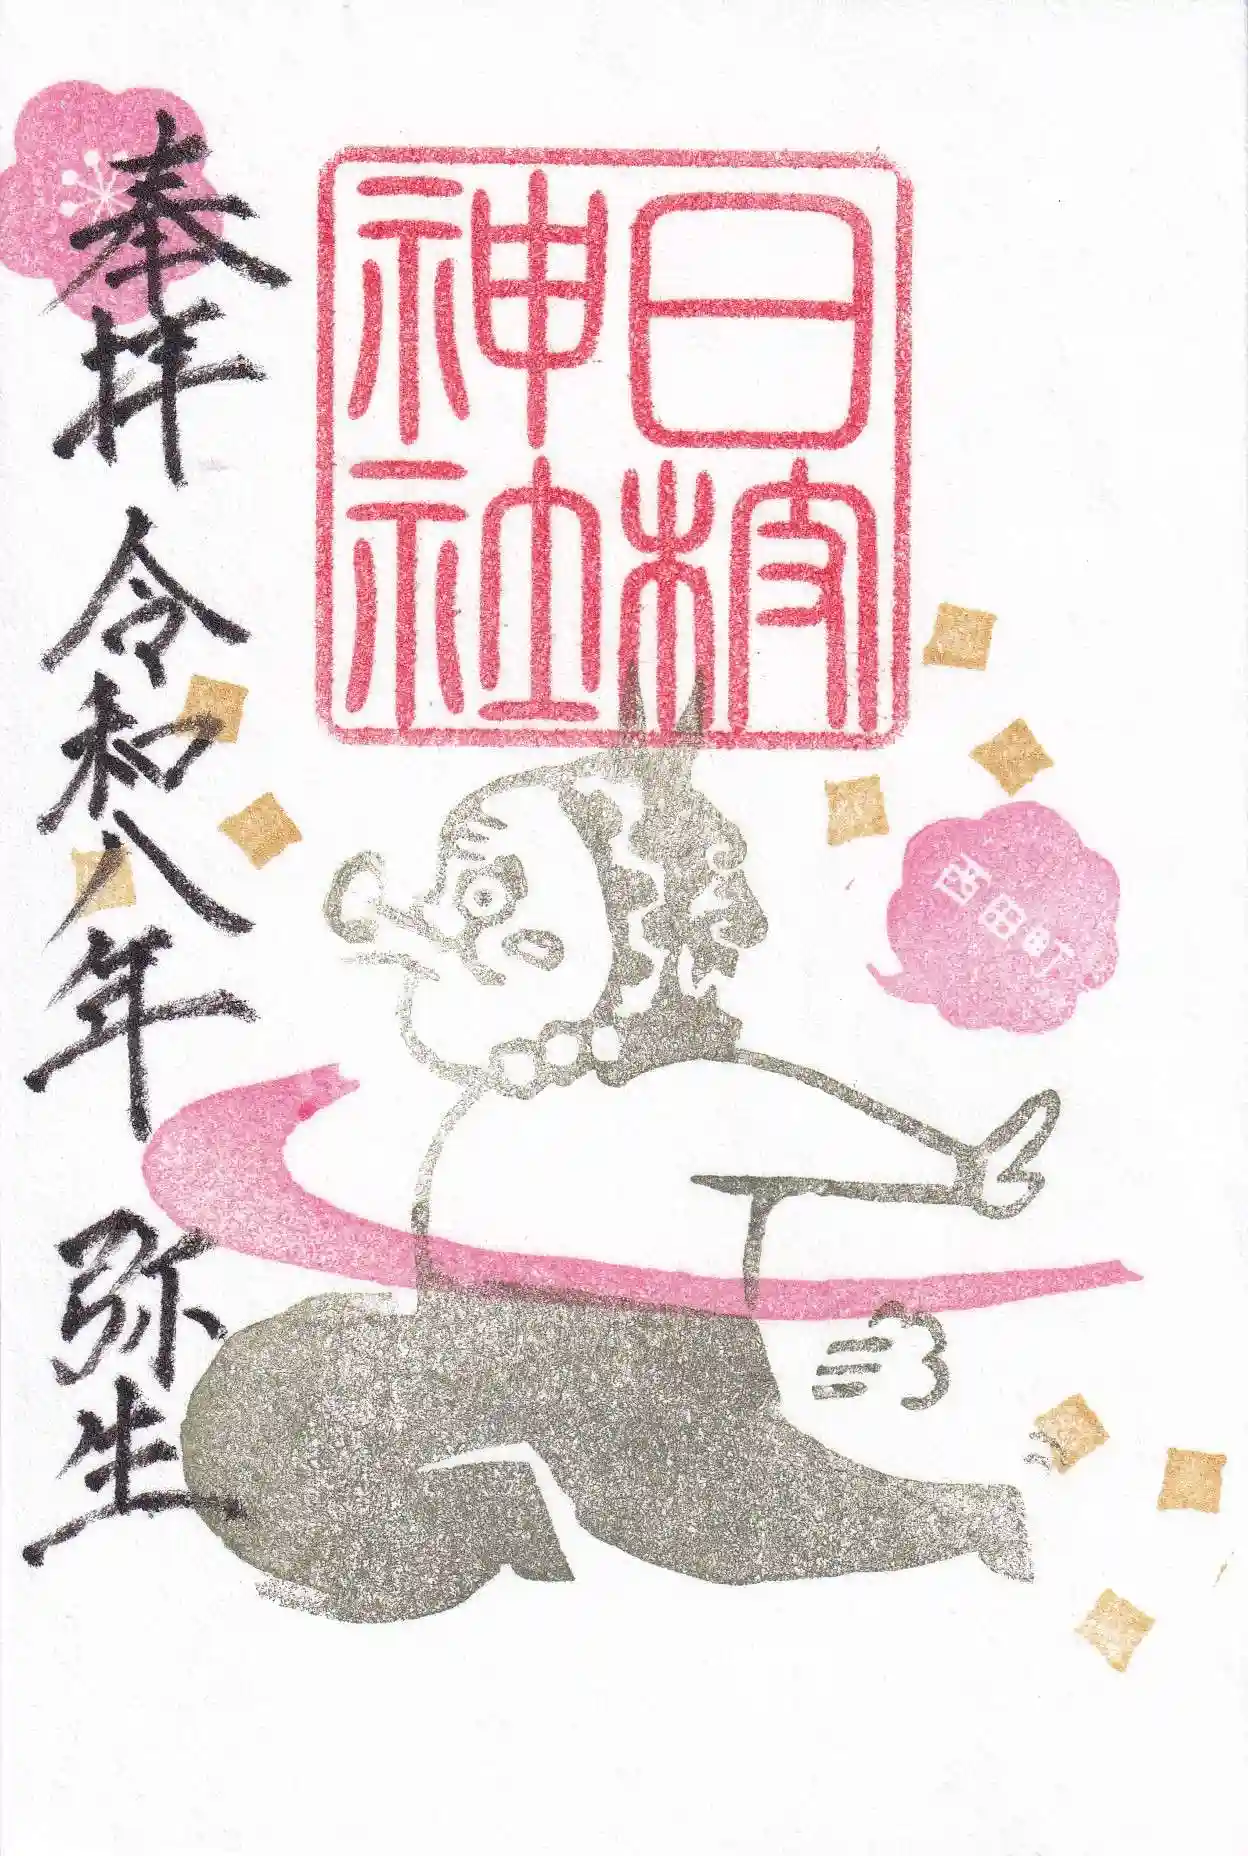 西田町
日枝
神社
奉拝 令和八年 弥生